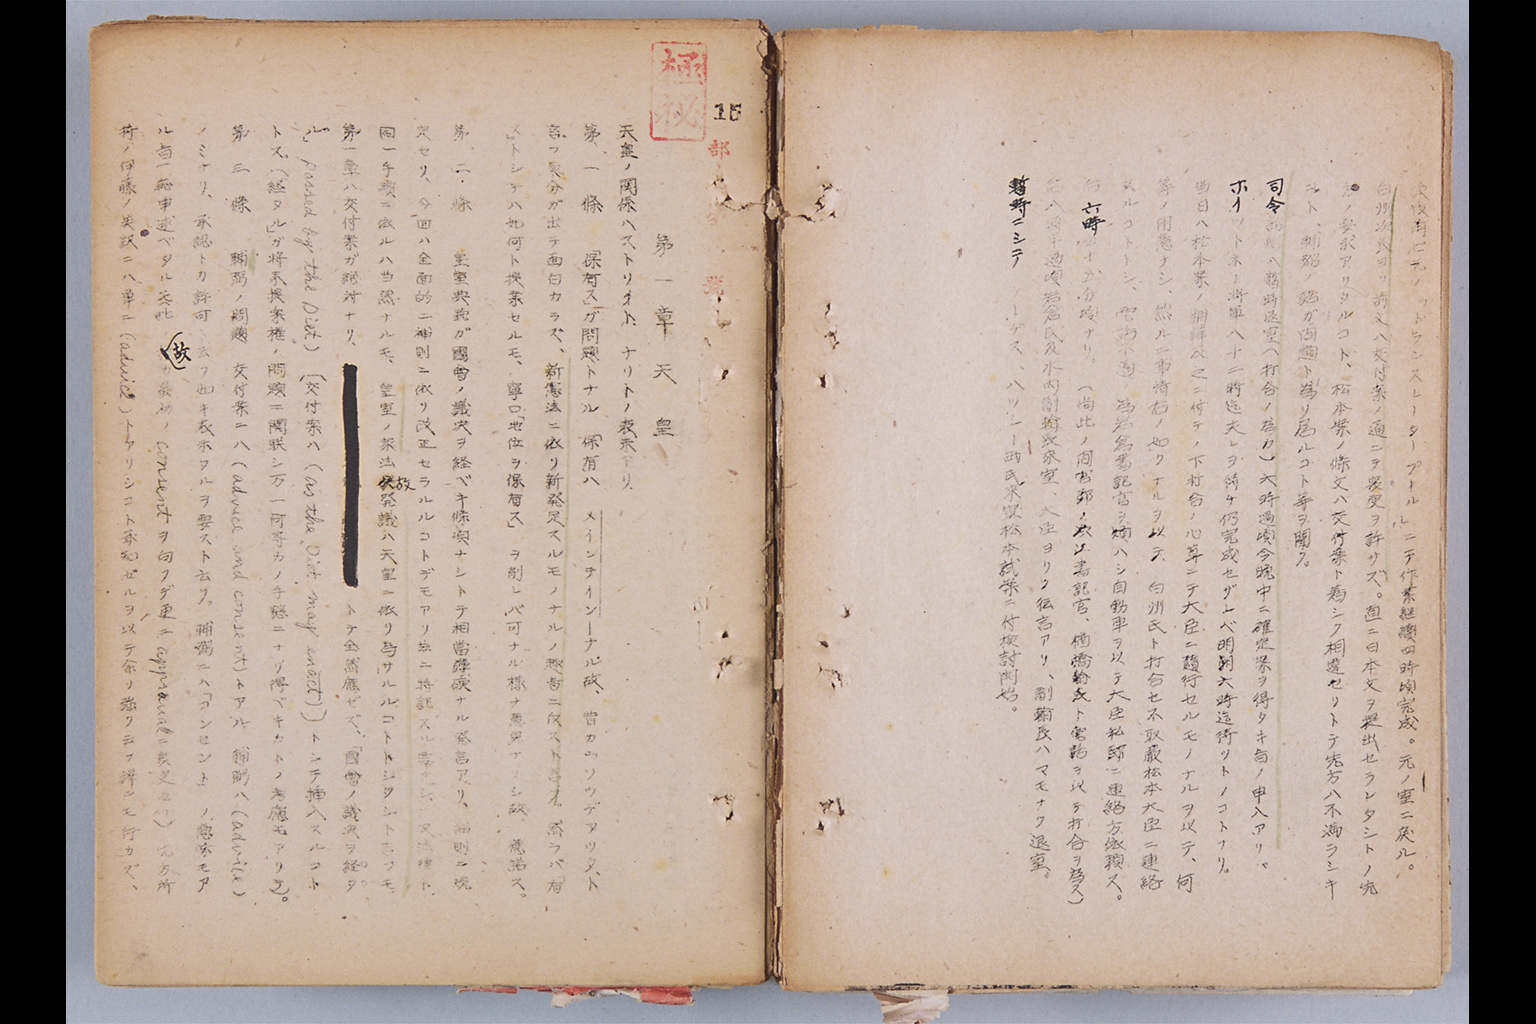 食後再ビ元ノ「トランスレーターブール」ニテ作業継續四時頃完成。元ノ室ニ戻ル。
白洲次長ヨリ前文ハ交付案ノ通ニテ変更ヲ許サズ。直ニ日本文ヲ提出セラレタシトノ先
方ノ要求アリタルコト、松本案ノ條文ハ交付案ト著シク相違セリトテ先方ハ不満ラシキ
コト、輔弼ノ點ガ問題ト為リ居ルコト等ヲ聞ク。
司令部側ハ暫時退室(打合ノ為カ)六時過頃今晩中ニ確定案ヲ得タキ旨ノ申入アリ。
ホイットネー將軍ハ十二時迄夫レヲ待チ仍完成セザレバ明朝六時迄待ツトノコトナリ。
当日ハ松本案ノ飜譯 之ニ付テノ下打合ノ心算ニテ大臣ニ隨行セルモノナルヲ以テ、何
等ノ用意ナシ、然ルニ事情右ノ如クナルヲ以テ 白洲氏ト打合セ不取敢松本大臣ニ連絡
スルコトトシ、電話不通 為岩倉書記官ヲ煩ハシ自動車ヲ以テ大臣私邸ニ連絡方依賴ス。
六時 十五分頃ナリ。(尚此ノ間 書記官、楢橋 氏ト電話ヲ以テ打合ヲ為ス)
八時半過頃岩倉氏及木内副 氏來室、大臣ヨリノ伝言アリ、副 氏ハマモナク退室。
暫時ニシテ ケーデス、ハッシー両氏來室松本試案ニ付検討開始。
極秘
15
部
号
第一章 天皇
天皇ノ関係ハストリクト ナリトノ表示アリ
第一條 「保有ス」ガ問題トナル「保有ハ メインテイン」ナル故、昔カラソウデアッタト
言フ氣分ガ出テ面白カラズ、新憲法ニ依リ新発足スルモノナルノ趣旨ニ反スト言フ。然ラバ「有
ス」トシテハ如何ト提案セルモ、寧ロ「地位ヲ保有ス」ヲ削レバ可ナル様ナ意見ナリシ故、應諾ス。
第二條 皇室典範ガ國會ノ議決ヲ経ベキ條項ナシトテ相當強硬ナル発言アリ、補則ニ規
定セリ、今回ハ全面的ニ補則ニ依リ改正セラルルコトデモアリ 特記スル要ナシ、又法律ト
同一手續ニ依ルハ当然ナルモ、皇室ノ家法故発議ハ天皇ニ依リ為サルルコトトシタシト言フモ、
第一章ハ交付案ガ絶対ナリ、 トテ全然應ゼズ、「國會ノ議決ヲ経タ
ル passed by the Diet) [交付案ハ (as the Diet may enact)] トシテ挿入スルコト
トス。(「経タル」ガ將来提案権ノ問題ニ関聯シ万一何等カノ手懸ニナリ得ベキカトノ考慮モアリテ)。
第三條 輔弼ノ問題 交付案ニハ (advice and consent) トアル 輔弼ハ (advice)
ノミナリ、承認トカ許可 云フ如キ表示ヲ要スト云フ。輔弼ニハ「コンセント」ノ意味モア
ル旨一應申述ベタル 故 最初ノ consent ヲ向フデ更ニ approval ニ変更セリ) 先方所
持ノ伊藤ノ英訳ニハ單ニ (advice) トアリシコト承知セルヲ以テ余リ強ク云フ譯ニモ行カズ、